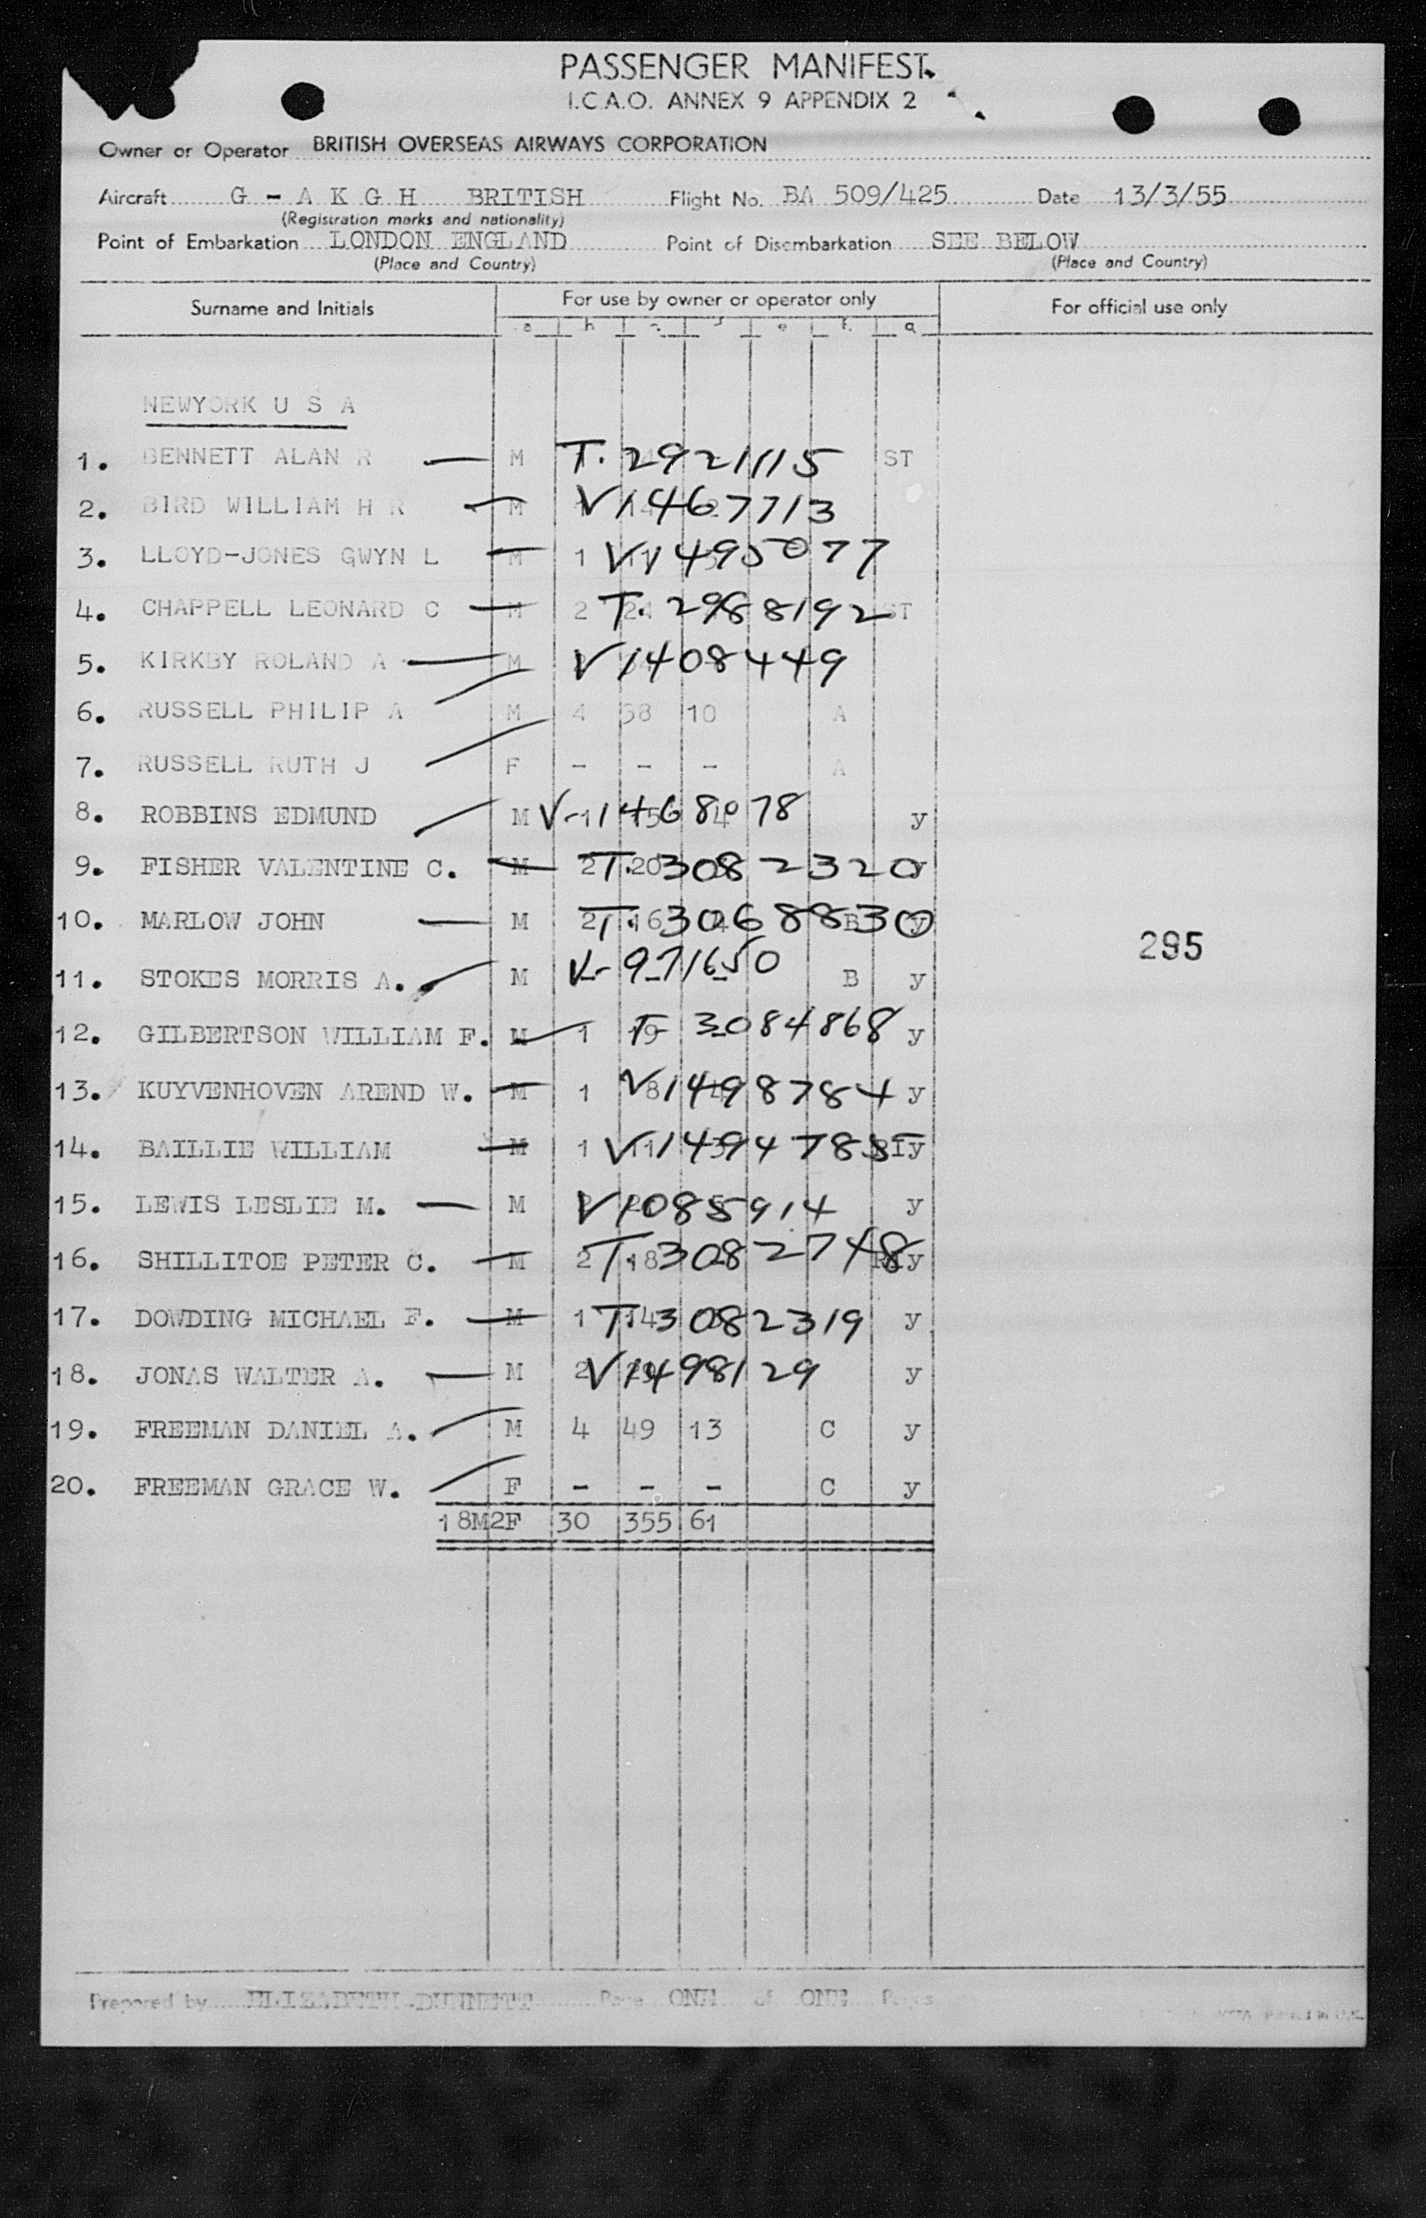 PASSENGER MANIFEST
I.C.A.O. ANNEX 9 APPENDIX 2
Owner or Operator BRITISH OVERSEAS AIRWAYS CORPORATION
Aircraft G - A K G H BRITISH Flight No. BA 509/425 Date 13/3/55
(Registration marks and nationality)
Point of Embarkation LONDON ENGLAND Point of Disembarkation SEE BELOW
(Place and Country) (Place and Country)
Surname and Initials For use by owner or operator only For official use only
a b c d e f g
NEWYORK U S A
1. BENNETT ALAN R M T. 2921115 ST
2. BIRD WILLIAM H R M V1467713
3. LLOYD-JONES GWYN L M 1 V1495077
4. CHAPPELL LEONARD C M 2 T. 2988192 ST
5. KIRKBY ROLAND A M V1408449
6. RUSSELL PHILIP A M 4 58 10 A
7. RUSSELL RUTH J F - - - A
8. ROBBINS EDMUND M V-1468078 y
9. FISHER VALENTINE C. M 2 T.3082320 y
10. MARLOW JOHN M 2 T. 3068830 B y
11. STOKES MORRIS A. M V-971650 B y
12. GILBERTSON WILLIAM F. M 1 19 T 3084868 y
13. KUYVENHOVEN AREND W. M 1 V1498784 y
14. BAILLIE WILLIAM M 1 V1494785 y
15. LEWIS LESLIE M. M V1085914 y
16. SHILLITOE PETER C. M 2 18 T.3082748 y
17. DOWDING MICHAEL F. M 1 14 T.3082319 y
18. JONAS WALTER A. M 2 V1498129 y
19. FREEMAN DANIEL A. M 4 49 13 C y
20. FREEMAN GRACE W. F - - - C y
18M2F 30 355 61
295
Prepared by ELIZABETH DUNNETT Page ONE of ONE Pages